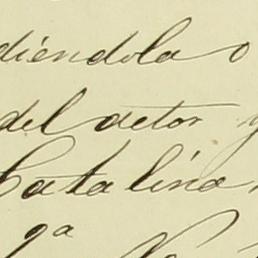 diéndola o
del actor y
Catalina
9ª